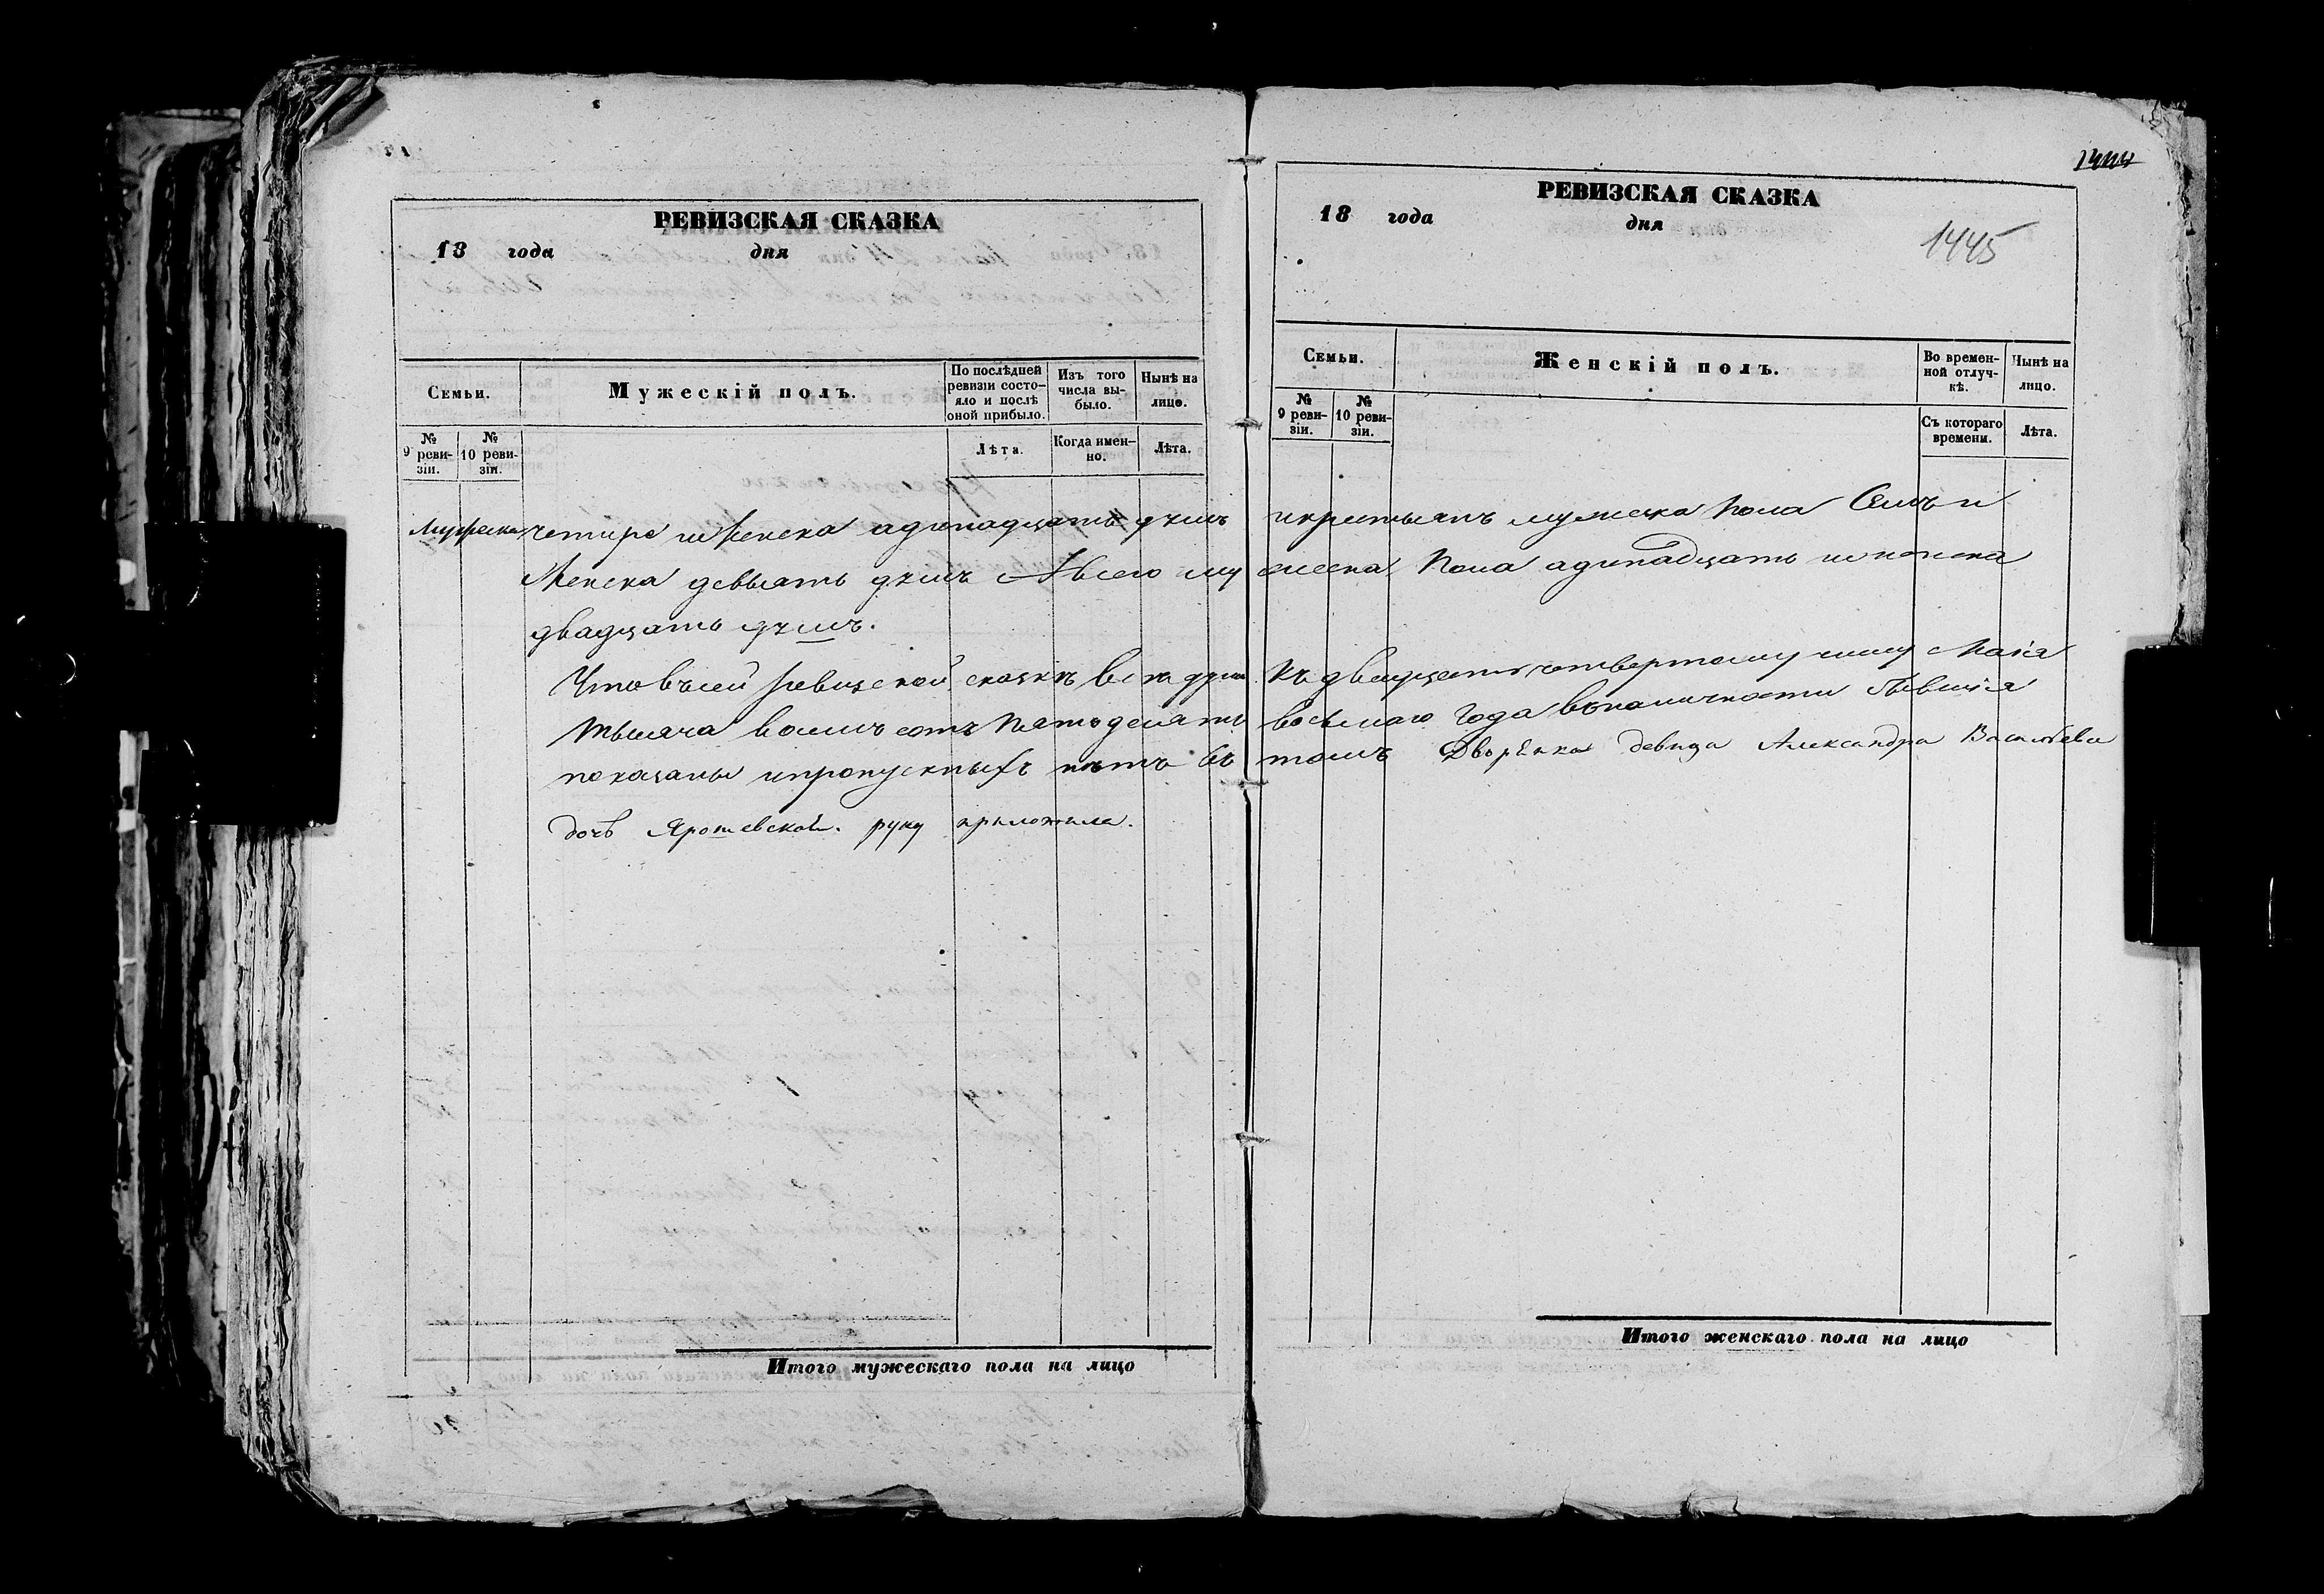 РЕВИЗСКАЯ СКАЗКА
18 года дня
Семьи.
Мужескій полъ.
По послѣдней ревизіи состояло и послѣ оной прибыло.
Изъ того числа выбыло.
Нынѣ на лицо.
№ 9 ревизіи.
№ 10 ревизіи.
Лѣта.
Когда именно.
Лѣта.
РЕВИЗСКАЯ СКАЗКА
18 года дня
1445
Семьи.
Женскій полъ.
Во временной отлучкѣ.
Нынѣ на лицо.
№ 9 ревизіи.
№ 10 ревизіи.
Съ котораго времени.
Лѣта.
Мужеска четире и женска адинадцать душъ икрестьянъ мужеска пола Семъ и
Женска девьять душъ Авсего мужеска пола адинадцать и женска
двадцать душъ.
Что въсей ревизской сказкѣ все души къ двадцать четвертому числу Маія
тысяча восемъ сотъ пятьдесятъ восьмаго года въналичности бывшія
показаны ипропускныхъ нѣтъ въ томъ Дворѣнка девица Александра Васильева
дочь Ярошевской. руку приложила.
Итого мужескаго пола на лицо
Итого женскаго пола на лицо